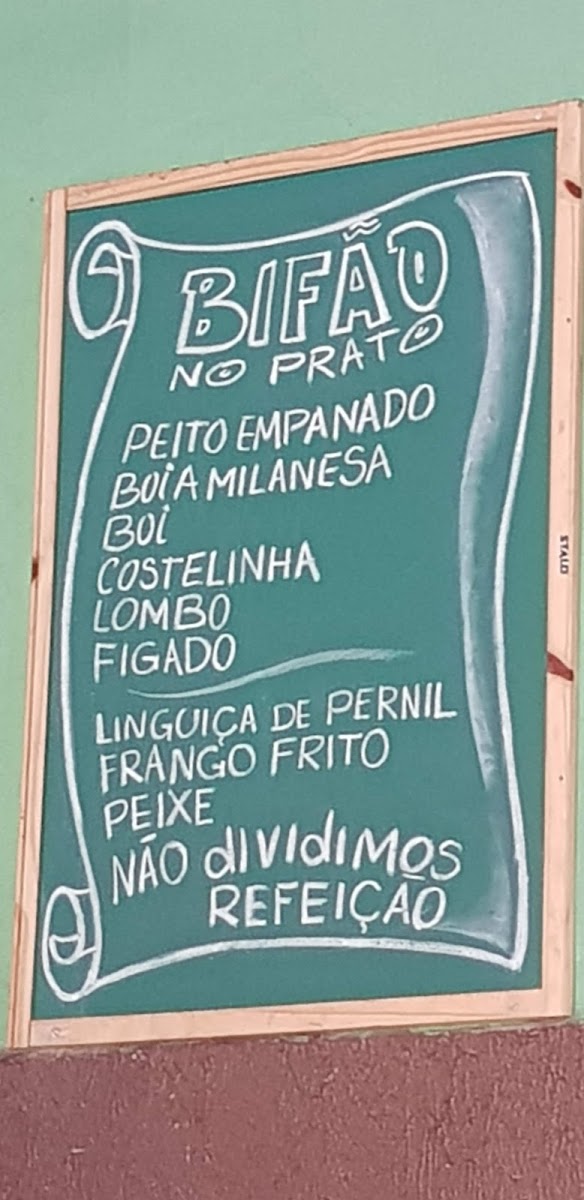 BIFÃO
NO PRATO
PEITO EMPANADO
BOi A MILANESA
BOi
COSTELINHA
LOMBO
FIGADO
LINGUIÇA DE PERNIL
FRANGO FRITO
PEIXE
NÃO dividiMOS
REFEIÇÃO
STALO